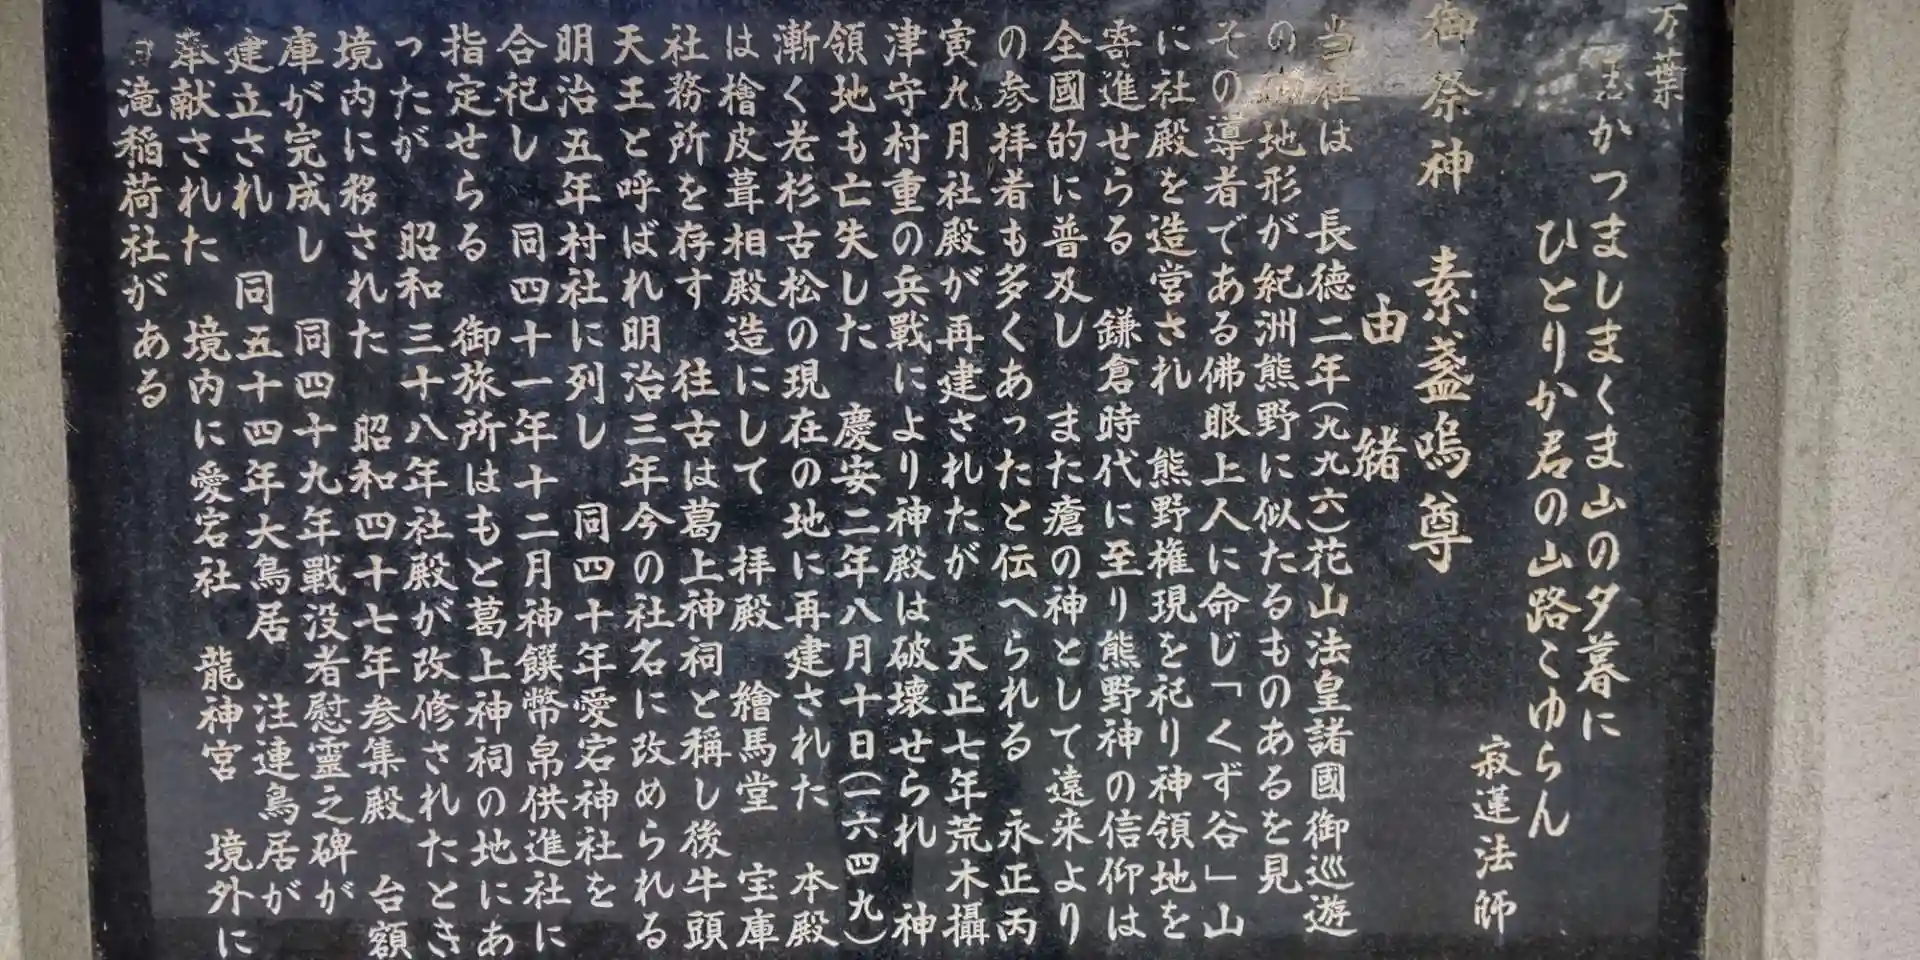 万葉
かつましまくま山の夕暮に
ひとりか君の山路こゆらん
寂蓮法師
御祭神 素盞嗚尊
由緒
当社は 長徳二年(九九六)花山法皇諸國御巡遊
の 地形が紀洲熊野に似たるものあるを見
その導者である佛眼上人に命じ「くず谷」山
に社殿を造営され 熊野権現を祀り神領地を
寄進せらる 鎌倉時代に至り熊野神の信仰は
全國的に普及し また瘡の神として遠来より
の参拝者も多くあったと伝へられる 永正丙
寅九月社殿が再建されたが 天正七年荒木攝
津守村重の兵戰により神殿は破壊せられ 神
領地も亡失した 慶安二年八月十日(一六四九)
漸く老杉古松の現在の地に再建された 本殿
は檜皮葺相殿造にして 拝殿 繪馬堂 宝庫
社務所を存す 往古は葛上神祠と稱し後牛頭
天王と呼ばれ明治三年今の社名に改められる
明治五年村社に列し 同四十年愛宕神社を
合祀し 同四十一年十二月神饌幣帛供進社に
指定せらる 御旅所はもと葛上神祠の地にあ
ったが 昭和三十八年社殿が改修されたとき
境内に移された 昭和四十七年参集殿 台額
庫が完成し 同四十九年戰没者慰靈之碑が
建立され 同五十四年大鳥居 注連鳥居が
奉献された 境内に愛宕社 龍神宮 境外に
滝稲荷社がある